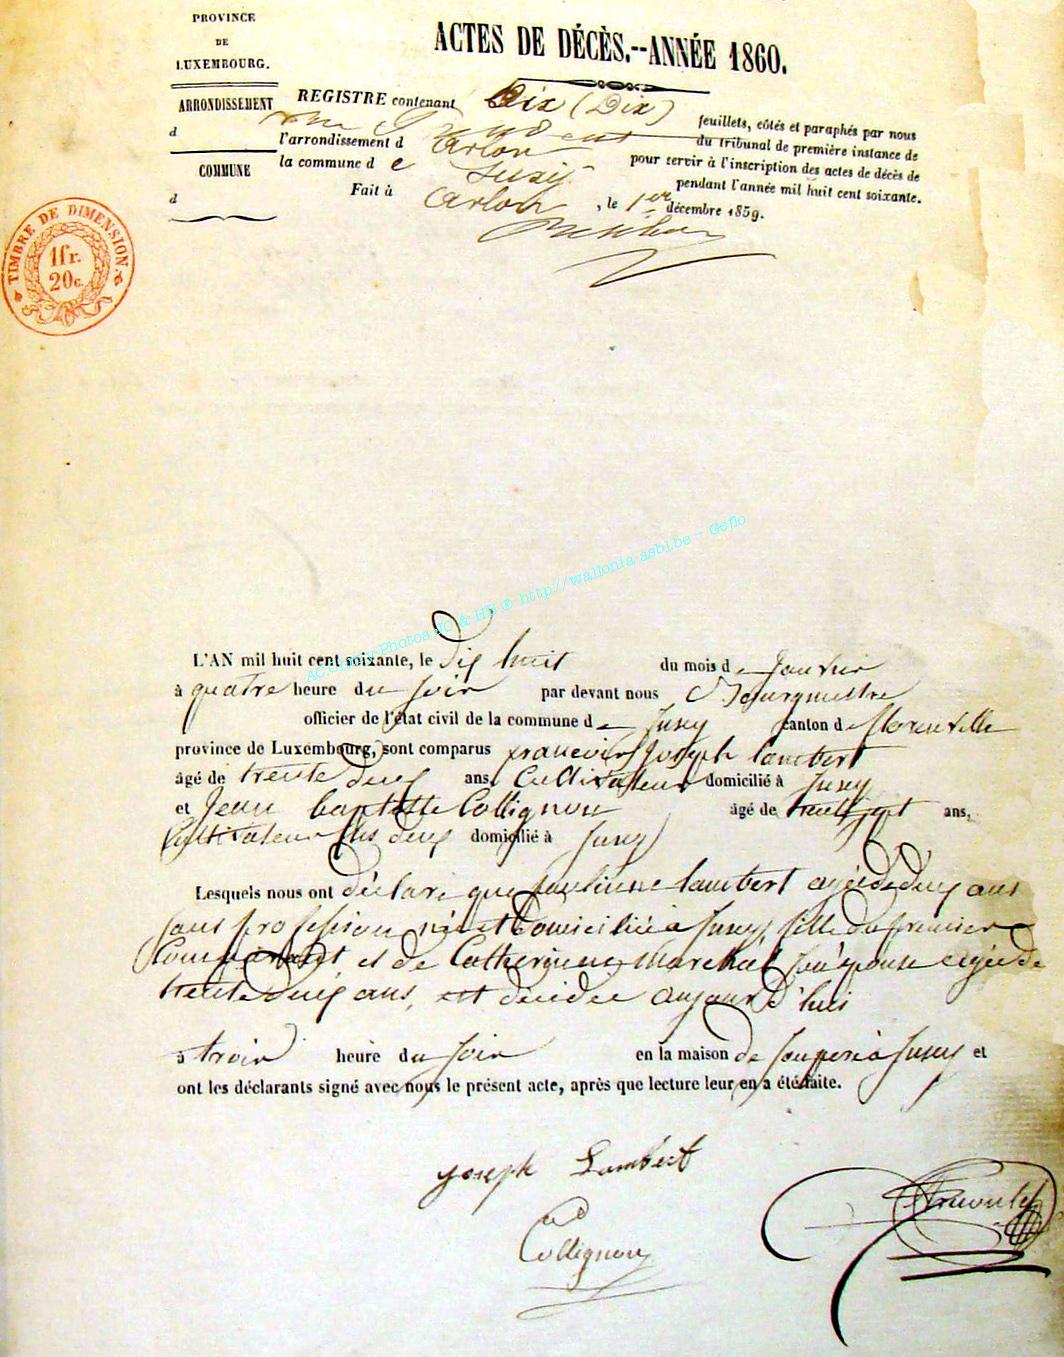 PROVINCE
DE
LUXEMBOURG.
ARRONDISSEMENT
d
COMMUNE
d
ACTES DE DÉCÈS.--ANNÉE 1860.
REGISTRE contenant Dix (Dix) feuillets, côtés et paraphés par nous
du tribunal de première instance de
l'arrondissement d Arlon pour servir à l'inscription des actes de décès de
la commune de Jusey pendant l'année mil huit cent soixante.
Fait à Arlon, le 1er décembre 1859.
TIMBRE DE DIMENSION.
1fr.
20c.
Accueil Photos JC & HB © http://wallonia-asbl.be - Geflo
L'AN mil huit cent soixante, le dix huit du mois de Janvier
à quatre heure du soir par devant nous Bourgmestre
officier de l'état civil de la commune de Jusey canton de florenville
province de Luxembourg, sont comparus francois Joseph lambert
âgé de trente deux ans, Cultivateur domicilié à Jusey
et Jean baptiste Collignon âgé de trente sept ans,
Cultivateur tous deux domicilié à Jusey
Lesquels nous ont déclaré que pauline lambert agée de deux ans
sans profession née et domiciliée à Jusey fille du premier
Comparant et de Catherine Marchal son épouse agée de
trente deux ans, est décédée aujourd'hui
à trois heure du soir en la maison de son père à Jusey et
ont les déclarants signé avec nous le présent acte, après que lecture leur en a été faite.
Joseph Lambert
Collignon